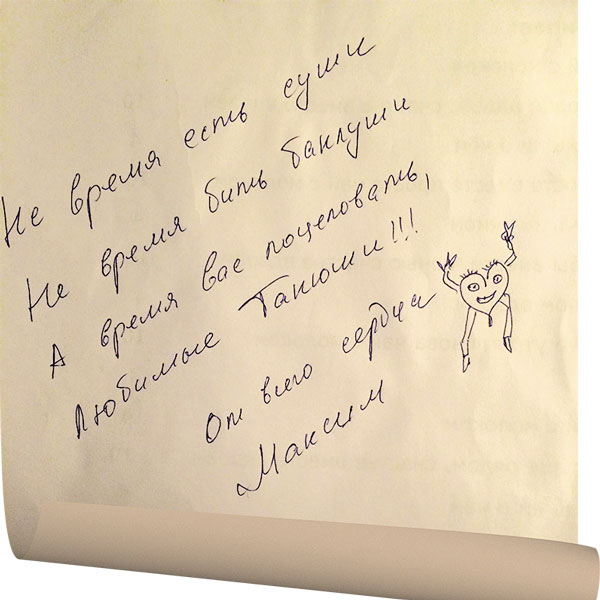 Не время есть суши
Не время бить баклуши
А время вас поцеловать,
Любимые Танюши!!!
От всего сердца
Максим